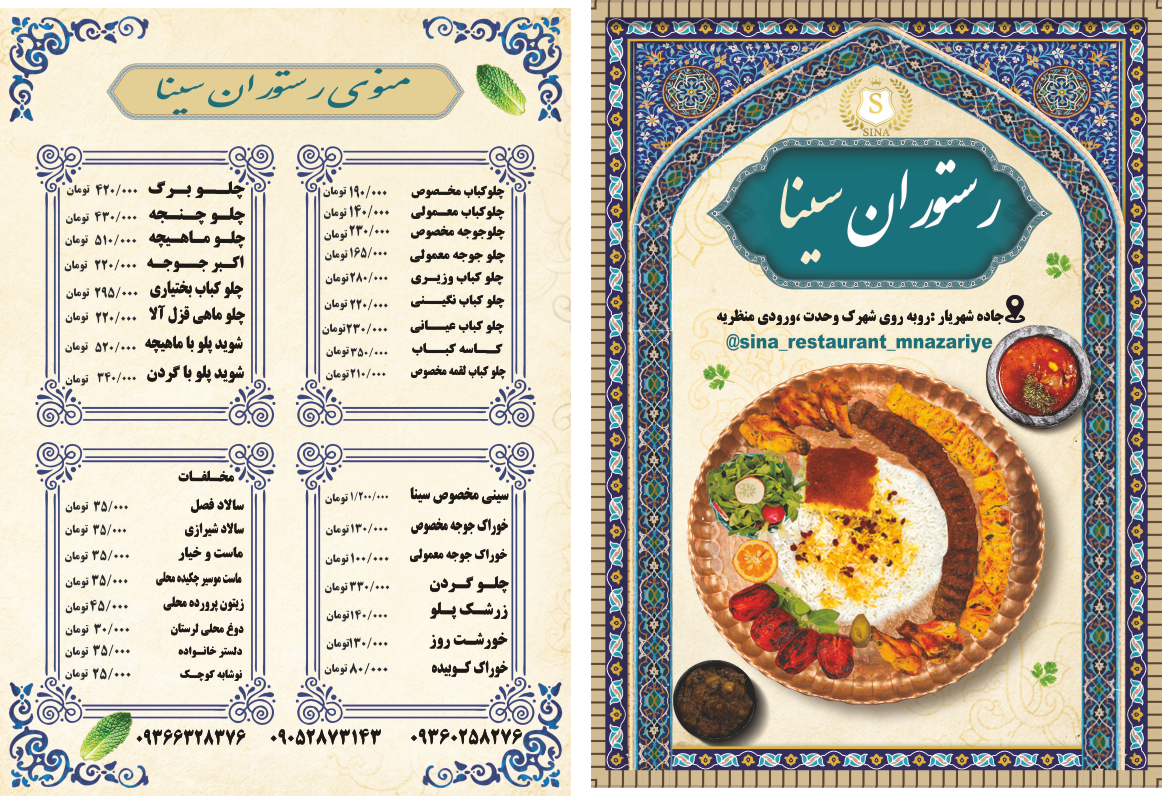 منوی رستوران سینا
چلوکباب مخصوص ۱۹۰/۰۰۰ تومان
چلوکباب معمولی ۱۴۰/۰۰۰ تومان
چلوجوجه مخصوص ۲۳۰/۰۰۰ تومان
چلو جوجه معمولی ۱۶۵/۰۰۰ تومان
چلو کباب وزیری ۲۸۰/۰۰۰ تومان
چلو کباب نگینی ۲۲۰/۰۰۰ تومان
چلو کباب عیانی ۲۳۰/۰۰۰ تومان
کاسه کباب ۳۵۰/۰۰۰ تومان
چلو کباب لقمه مخصوص ۲۱۰/۰۰۰ تومان
چلو برگ ۴۲۰/۰۰۰ تومان
چلو چنجه ۴۳۰/۰۰۰ تومان
چلو ماهیچه ۵۱۰/۰۰۰ تومان
اکبر جوجه ۲۲۰/۰۰۰ تومان
چلو کباب بختیاری ۲۹۵/۰۰۰ تومان
چلو ماهی قزل آلا ۲۲۰/۰۰۰ تومان
شوید پلو با ماهیچه ۵۲۰/۰۰۰ تومان
شوید پلو با گردن ۳۴۰/۰۰۰ تومان
سینی مخصوص سینا ۱/۲۰۰/۰۰۰ تومان
خوراک جوجه مخصوص ۱۳۰/۰۰۰ تومان
خوراک جوجه معمولی ۱۰۰/۰۰۰ تومان
چلو گردن ۳۳۰/۰۰۰ تومان
زرشک پلو ۱۴۰/۰۰۰ تومان
خورشت روز ۱۳۰/۰۰۰ تومان
خوراک کوبیده ۸۰/۰۰۰ تومان
مخلفات
سالاد فصل ۳۵/۰۰۰ تومان
سالاد شیرازی ۳۵/۰۰۰ تومان
ماست و خیار ۳۵/۰۰۰ تومان
ماست موسیر چکیده محلی ۳۵/۰۰۰ تومان
زیتون پرورده محلی ۴۵/۰۰۰ تومان
دوغ محلی لرستان ۳۰/۰۰۰ تومان
دلستر خانواده ۳۵/۰۰۰ تومان
نوشابه کوچک ۲۵/۰۰۰ تومان
۰۹۳۶۶۳۲۸۳۷۶ ۰۹۰۵۲۸۷۳۱۴۳ ۰۹۳۶۰۲۵۸۲۷۶
S
SINA
رستوران سینا
جاده شهریار :روبه روی شهرک وحدت ،ورودی منظریه
@sina_restaurant_mnazariye